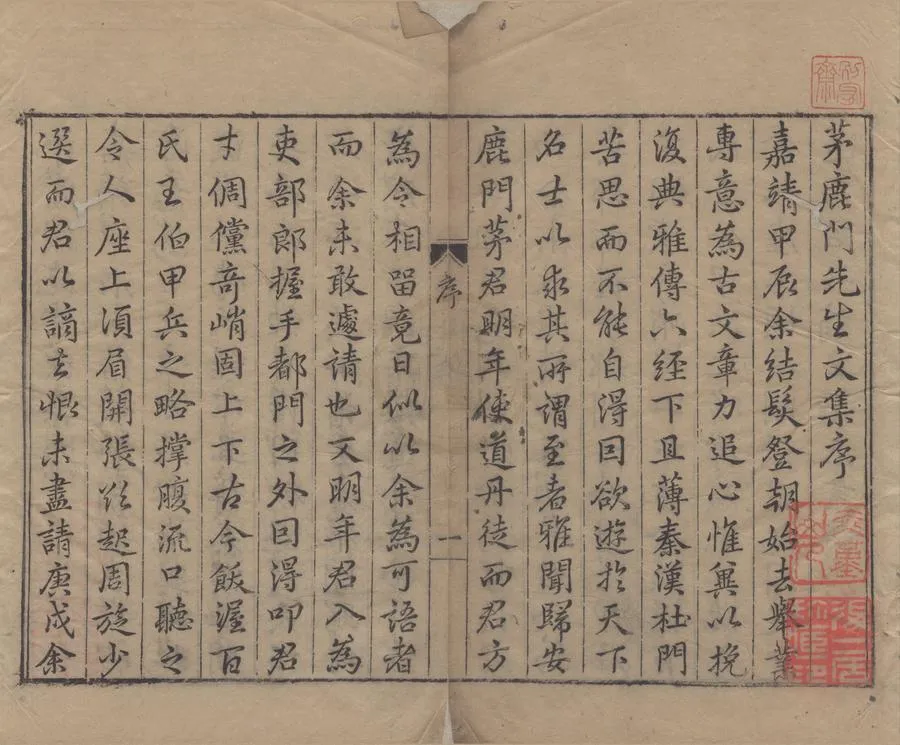 茅鹿門先生文集序
嘉靖甲辰余結髮登朝始去舉業
專意為古文章力追心惟兾以挽
復典雅傳六經下且薄秦漢杜門
苦思而不能自得囙欲遊於天下
名士以求其所謂至者雅聞歸安
鹿門茅君明年使道丹徒而君方
序
一
為令相留竟日似以余為可語者
而余未敢遽請也又明年君入為
吏部郎握手都門之外囙得叩君
才倜儻奇峭固上下古今飯渥百
氏王伯甲兵之略撑腹流口聽之
令人座上湏眉開張欲起周旋少
選而君以謫去恨未盡請庚戌余